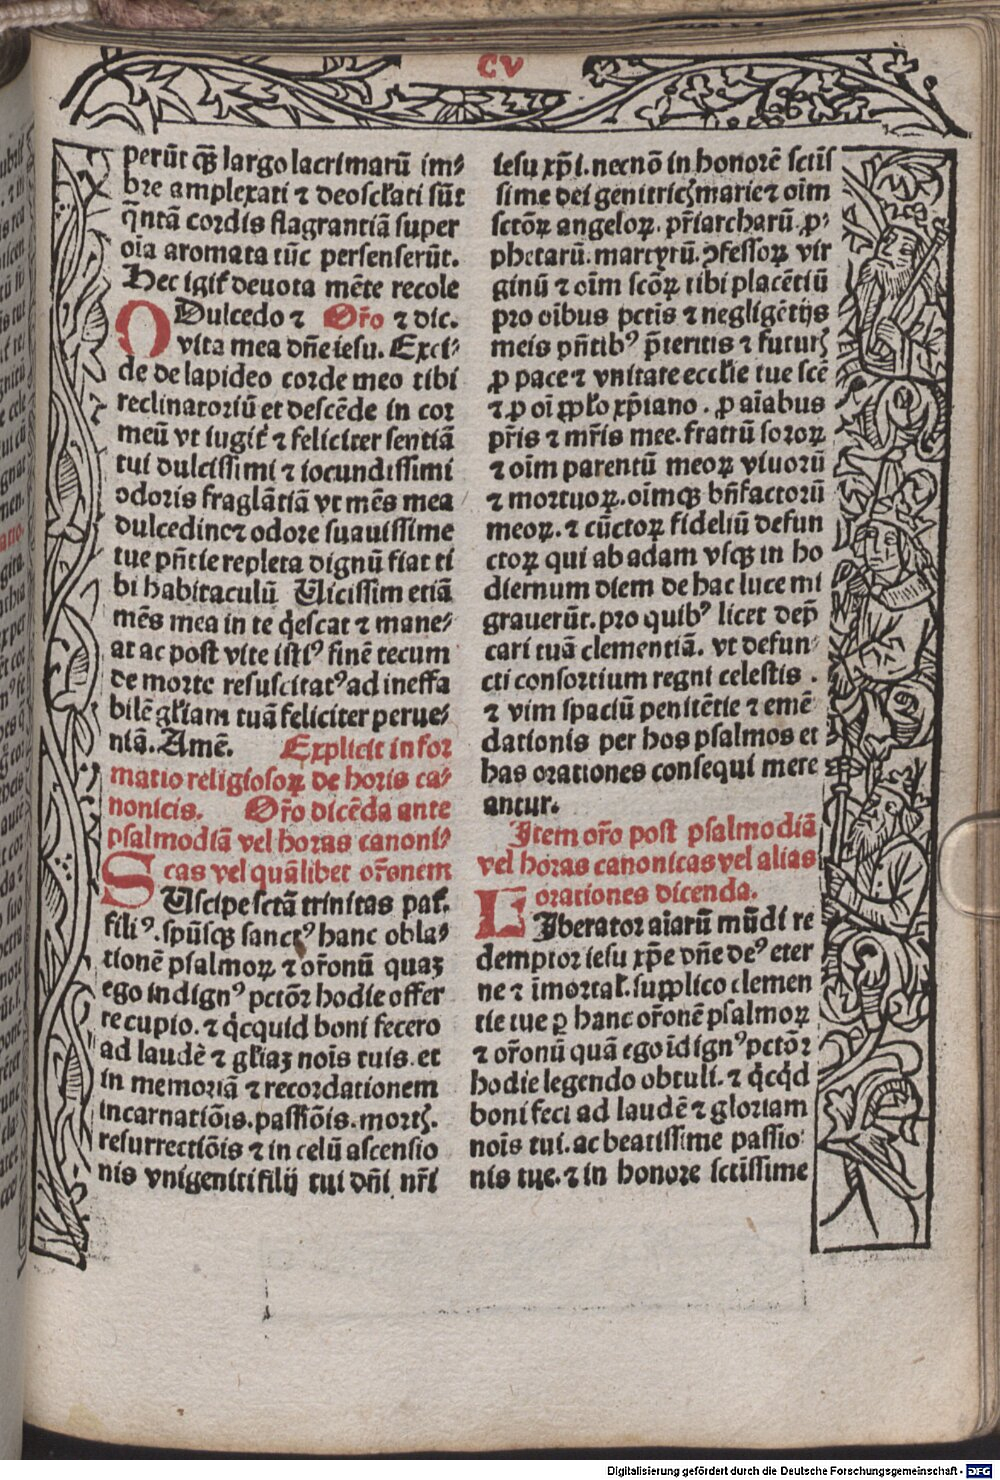 CV
perūt qꝫ largo lacrimarū im⸗
bre amplexati ⁊ deosct̄ati sūt
q̄ntā cordis flagrantiā super
oīa aromata tūc persenserūt.
Hec igit̄ deuota mēte recole
O Dulcedo ⁊ Or̄o ⁊ dic.
vita mea dn̄e iesu. Exci⸗
de de lapideo corde meo tibi
reclinatoriū et descēde in cor
meū vt iugit̄ ⁊ feliciter sentiā
tui dulcissimi ⁊ iocundissimi
odoris fraglātiā vt mēs mea
dulcedine⁊ odore suauissime
tue pn̄tie repleta dignū fiat ti
bi habitaculū Uicissim etiā
mēs mea in te q̇escat ⁊ mane⸗
at ac post vite istiꝰ finē tecum
de morte resuscitatꝰ ad ineffa
bilē gl̄iam tuā feliciter perue⸗
niā. Amē. Explicit infor
matio religiosoꝝ de horis ca⸗
nonicis. Or̄o dicēda ante
psalmodiā vel horas canoni⸗
cas vel quālibet or̄onem
SUscipe sctā trinitas pat̄.
filiꝰ. spūsqꝫ sanctꝰ hanc obla⸗
tionē psalmoꝝ ⁊ or̄onū quaꝫ
ego indignꝰ pctōr hodie offer
re cupio. ⁊ q̇cquid boni fecero
ad laudē ⁊ gl̄iaꝫ noīs tuis. et
in memoriā ⁊ recordationem
incarnatiōis. passiōis. mortꝭ.
resurrectiōis ⁊ in celū ascensio
nis vnigeniti filij tui dn̄i nr̄i
iesu xp̄i. necnō in honorē sctīs
sime dei genitricꝭ marie ⁊ oīm
sctōꝝ angeloꝝ. pr̄iarcharū. ꝓ⸗
phetarū. martyrū. ꝯfessoꝝ vir
ginū ⁊ oīm scōꝝ tibi placētiū
pro oībus pctis ⁊ negligētijs
meis pn̄tibꝰ p̄teritis ⁊ futurꝭ
ꝓ pace ⁊ vnitate eccl̄ie tue scē
⁊ ꝓ oī pp̄lo xp̄iano. ꝓ aīabus
pr̄is ⁊ mr̄is mee. fratrū soroꝝ
⁊ oīm parentū meoꝝ viuorū
⁊ mortuoꝝ. oīmqꝫ bn̄factorū
meoꝝ. ⁊ cūctoꝝ fideliū defun
ctoꝝ qui ab adam vsqꝫ in ho
diernum diem de hac luce mi
grauerūt. pro quibꝰ licet dep̄
cari tuā clementiā. vt defun⸗
cti consortium regni celestis.
⁊ vim spaciū penitētie ⁊ emē
dationis per hos psalmos et
has orationes consequi mere
antur.
Item or̄o post psalmodiā
vel horas canonicas vel alias
orationes dicenda.
LIberator aīarū mūdi re
demptor iesu xp̄e dn̄e deꝰ eter
ne ⁊ īmortal̄. supplico clemen
tie tue ꝑ hanc or̄onē psalmoꝝ
⁊ or̄onū quā ego īdignꝰ pctōr
hodie legendo obtuli. ⁊ q̇cq̇d
boni feci ad laudē ⁊ gloriam
noīs tui. ac beatissime passio⸗
nis tue. ⁊ in honore sctissime
Digitalisierung gefördert durch die Deutsche Forschungsgemeinschaft - DFG